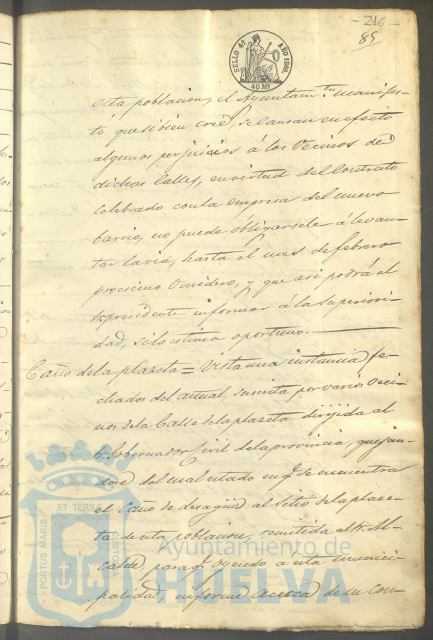 - 216 -
85
SELLO 4º AÑO 1860.
40 Ms
esta poblacion, el Ayuntamto manifes-
tó que si bien cree, se causan en efecto
algunos perjuicios á los Vecinos de
dichas Calles, en virtud del Contrato
celebrado con la empresa del nuevo
barrio, no puede obligarsele á levan-
tar la via, hasta el mes de febrero
procsimo venidero, y que asi podrá el
Presidente informar á la Superiori-
dad, si lo estima oportuno.
Caño de la plazeta = Vista una instancia fe-
chados del actual, suscrita por varios veci-
nos de la Calle de la plazeta dirijida al
Sr. Gobernador Civil de la provincia, quejan-
dose del mal estado en q. se encuentra
el Caño de desagüe al sitio de la plaze-
ta de esta poblacion, remitida al Sr. Al-
calde, para q. oyendo a esta munici-
palidad informe acerca de su con-
PORTUS MARIS ET TERRAE CUSTODIA
Ayuntamiento de
HUELVA